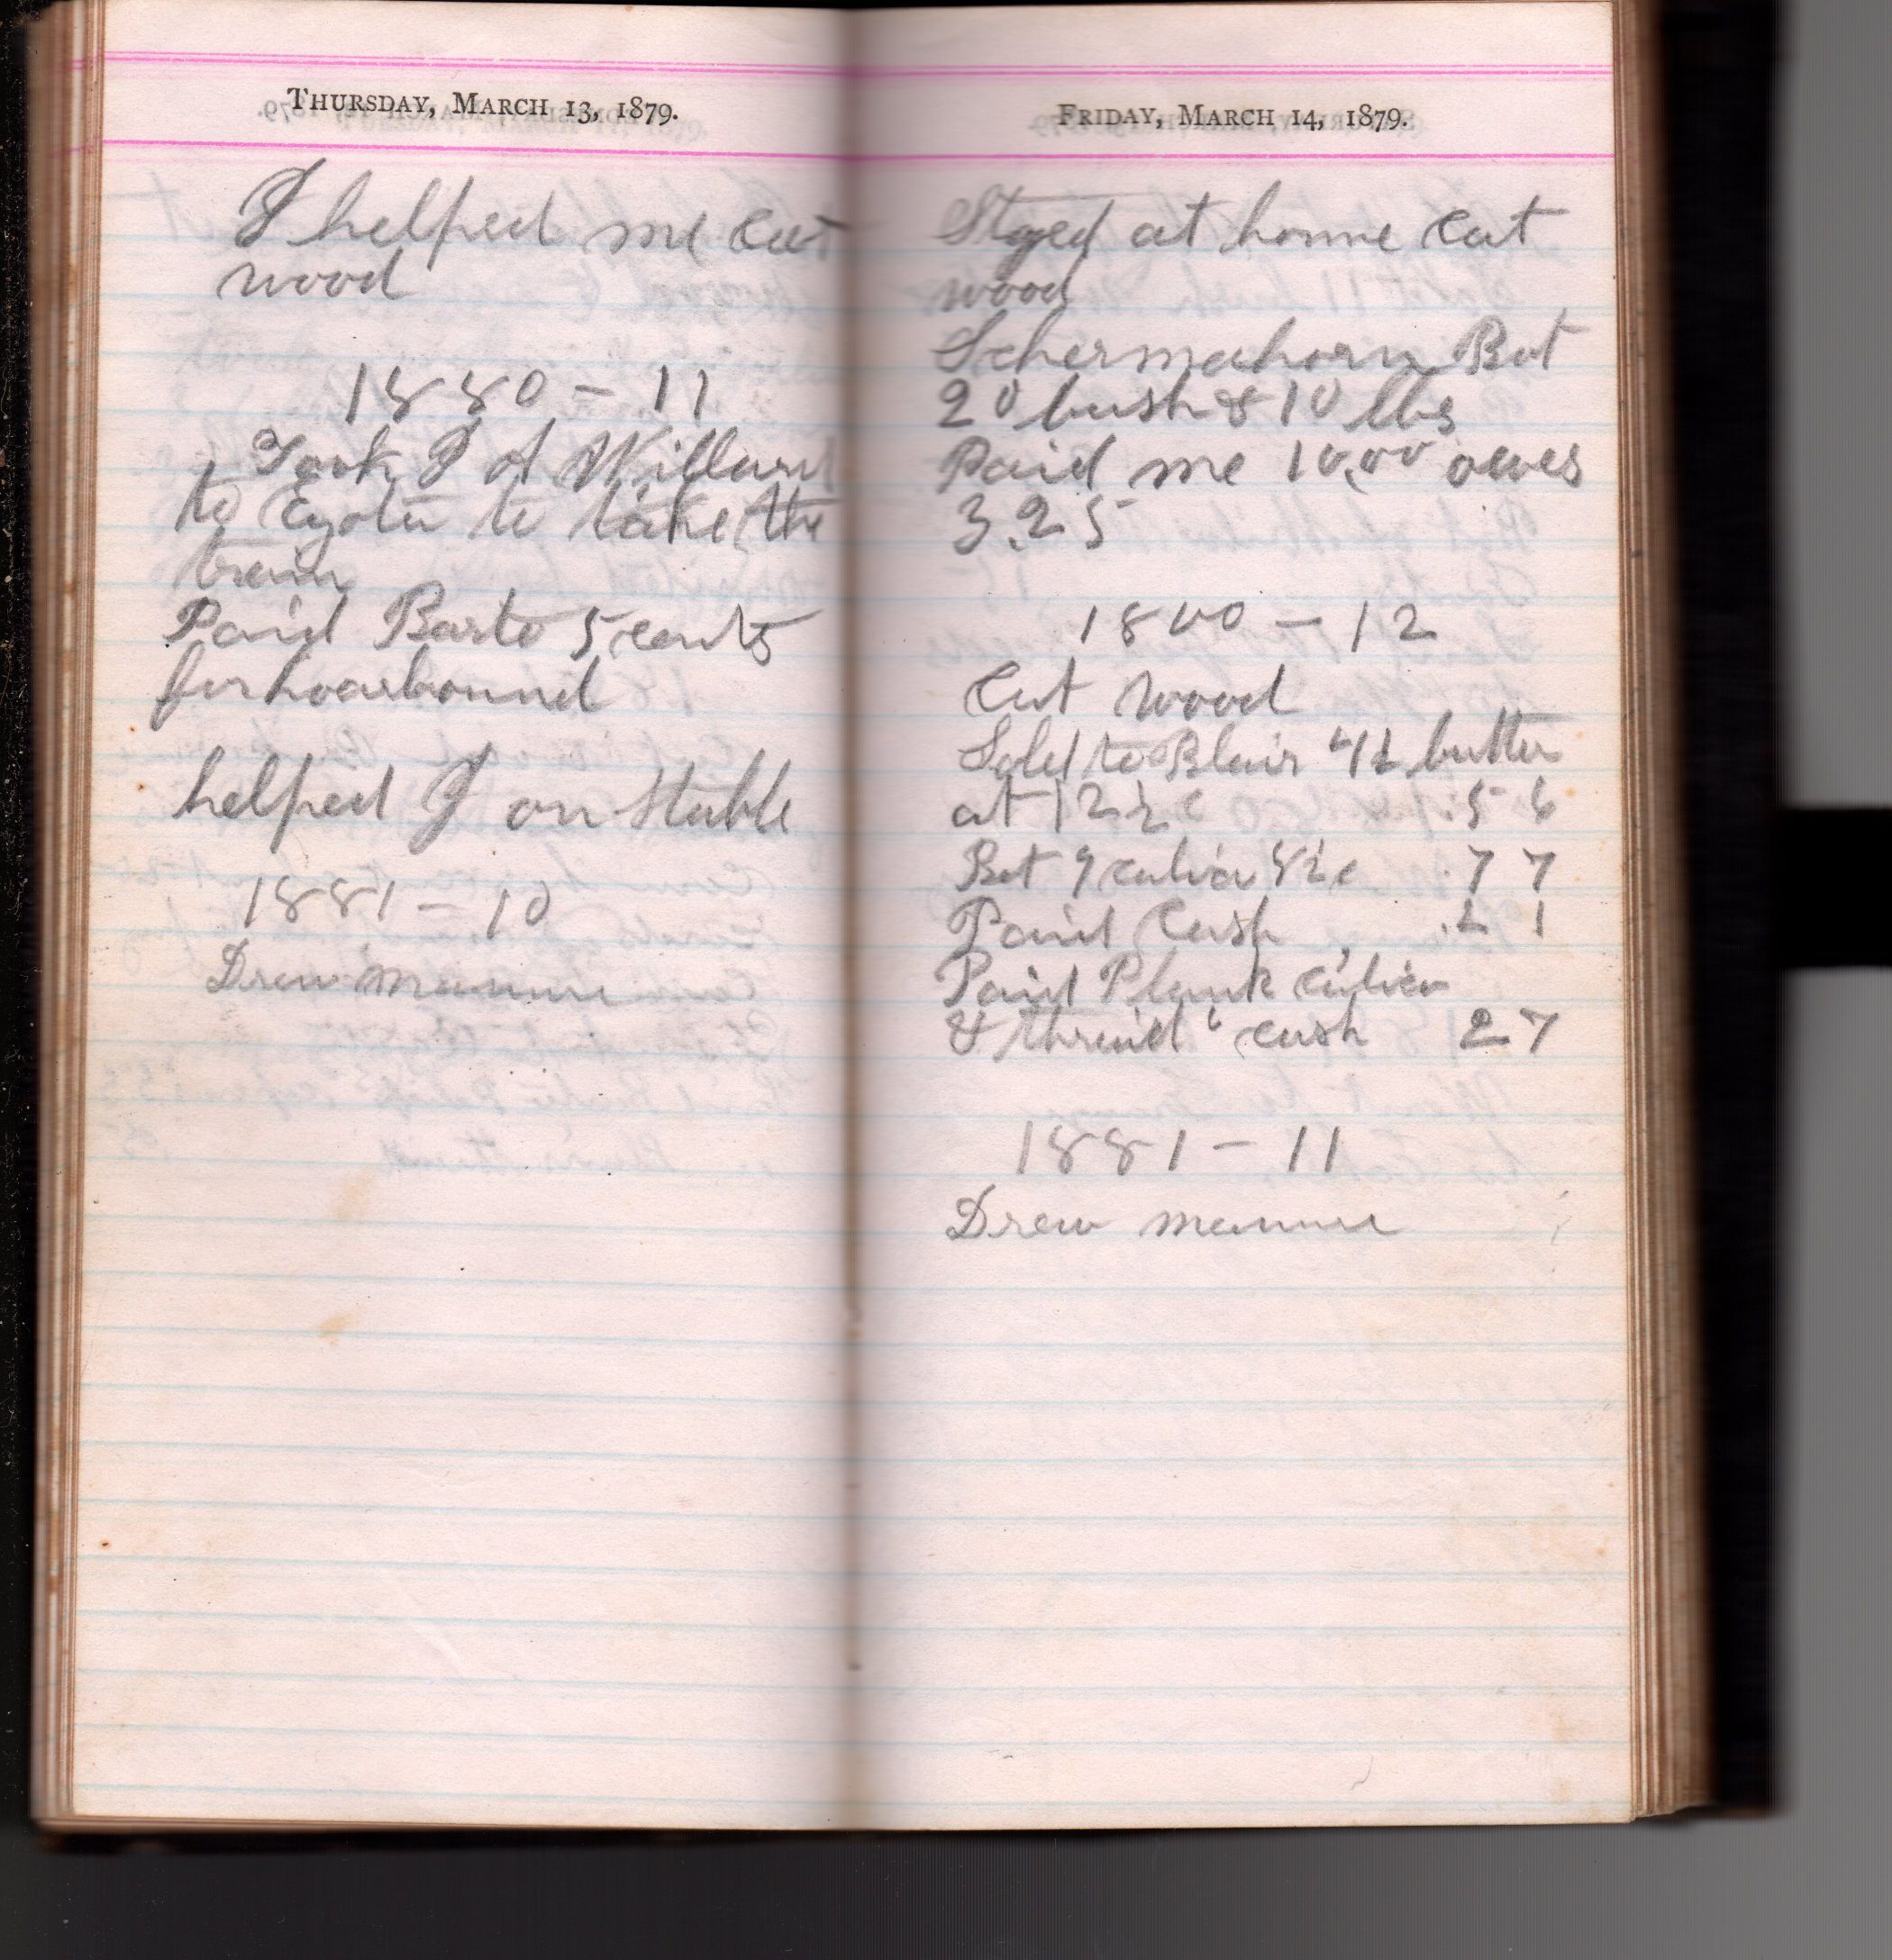 THURSDAY, MARCH 13, 1879.
J helped me cut
wood
1880 - 11
Took J & Willard
to Eyota to take the
train
Paid Barto 5 cents
for hoarhound
helped J on stable
1881 - 10
Drew manure
FRIDAY, MARCH 14, 1879.
Stayed at home cut
wood
Schermahorn Bot
20 bush & 10 lbs
Paid me 10.00 owes
3.25
1880 - 12
Cut wood
Sold to Blair 4½ butter
at 12½ c .56
Bot 9 calico 8½c .77
Paid Cash .21
Paid Plank calico
& thread cash 27
1881 - 11
Drew manure